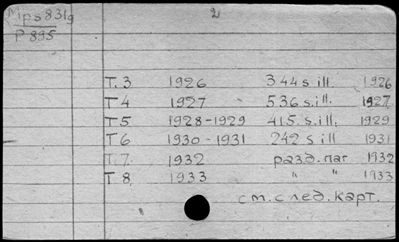 Mps831g 2
P 895
Т. 3 1926 344 s ill. 1926
Т 4 1927 536 s. ill. 1927
Т 5 1928-1929 415 s. ill. 1929
Т 6 1930-1931 242 s ill 1931
Т. 7. 1932 разд. паг. 1932
Т 8. 1933 " " 1933
см. след. карт.